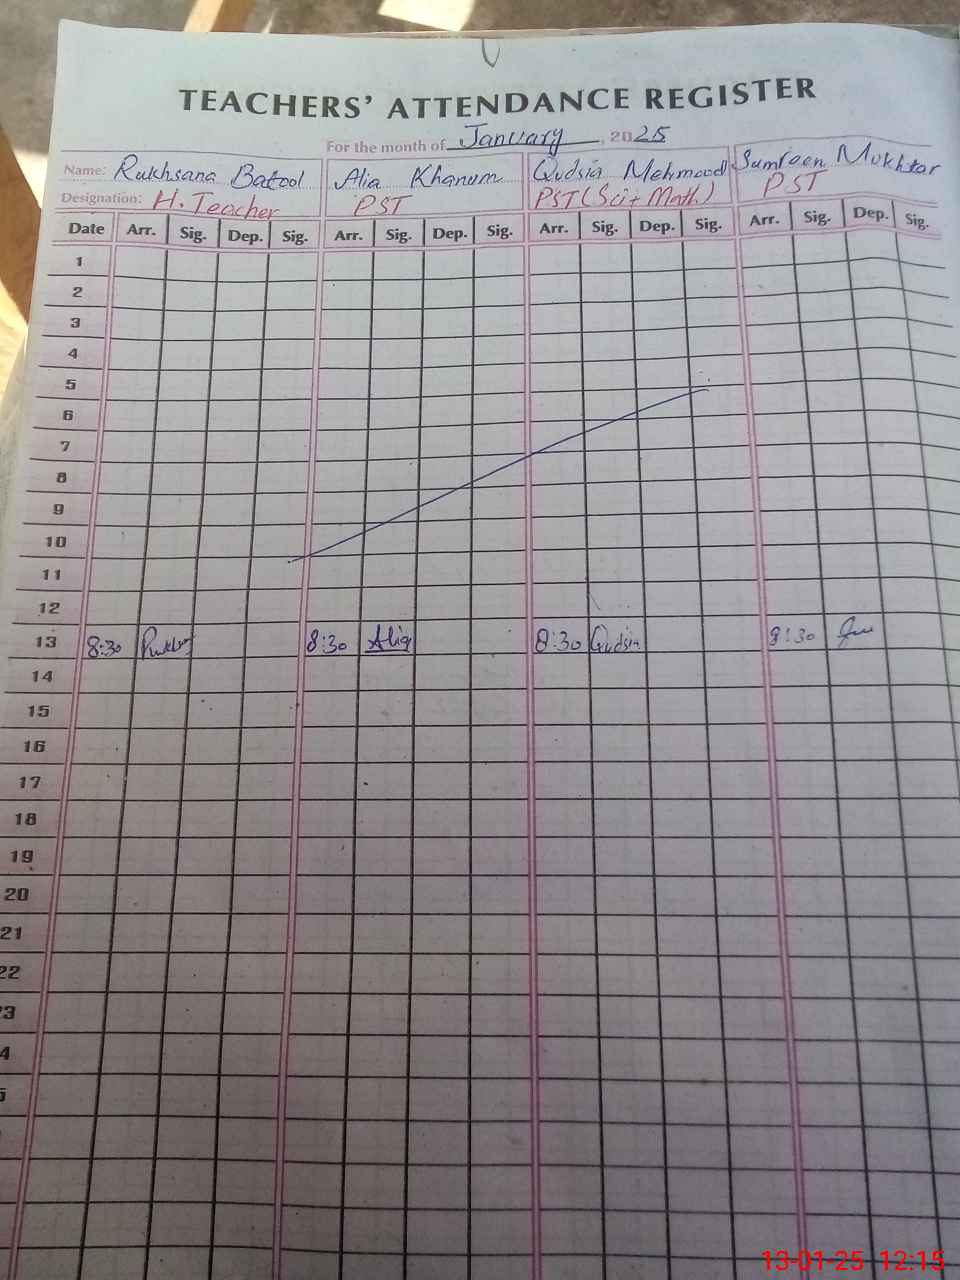 TEACHERS' ATTENDANCE REGISTER
For the month of January, 2025
Name: Rukhsana Batool Alia Khanum Qudsia Mehmood Sumreen Mukhtar
Designation: H. Teacher PST PST (Sci + Math) PST
Date Arr. Sig. Dep. Sig. Arr. Sig. Dep. Sig. Arr. Sig. Dep. Sig. Arr. Sig. Dep. Sig.
1
2
3
4
5
6
7
8
9
10
11
12
13 8:30 8:30 Alia 8:30 Qudsia 8:30
14
15
16
17
18
19
20
21
22
3
4
5
13-01-25 12:15